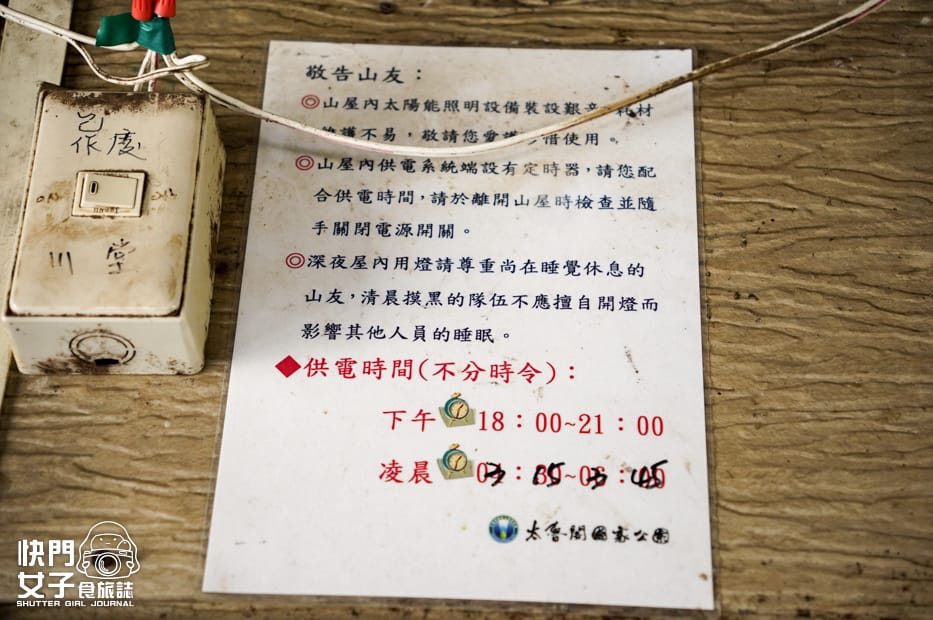 敬告山友：
◎山屋內太陽能照明設備裝設艱辛，耗材
維護不易，敬請您愛護珍惜使用。
◎山屋內供電系統端設有定時器，請您配
合供電時間，請於離開山屋時檢查並隨
手關閉電源開關。
◎深夜屋內用燈請尊重尚在睡覺休息的
山友，清晨摸黑的隊伍不應擅自開燈而
影響其他人員的睡眠。
◆供電時間(不分時令)：
下午 18：00~21：00
凌晨
太魯閣國家公園
ON
川堂
快門
女子食旅誌
SHUTTER GIRL JOURNAL